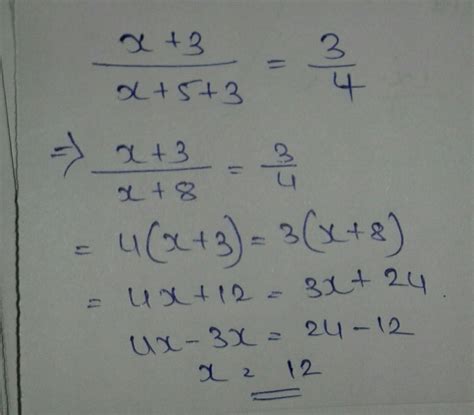 x+3 / x+5+3 = 3/4
⇒ x+3 / x+8 = 3/4
= 4(x+3) = 3(x+8)
= 4x+12 = 3x+24.
4x-3x = 24-12
x = 12